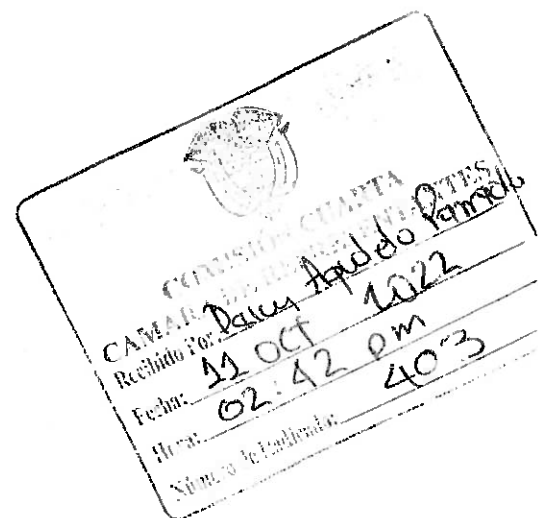 COMISIÓN CUARTA
CAMARA DE REPRESENTANTES
Recibido Por: Agudelo
Fecha: 11 OCT 2022
Hora: 02:42 pm
Número de Radicado: 403